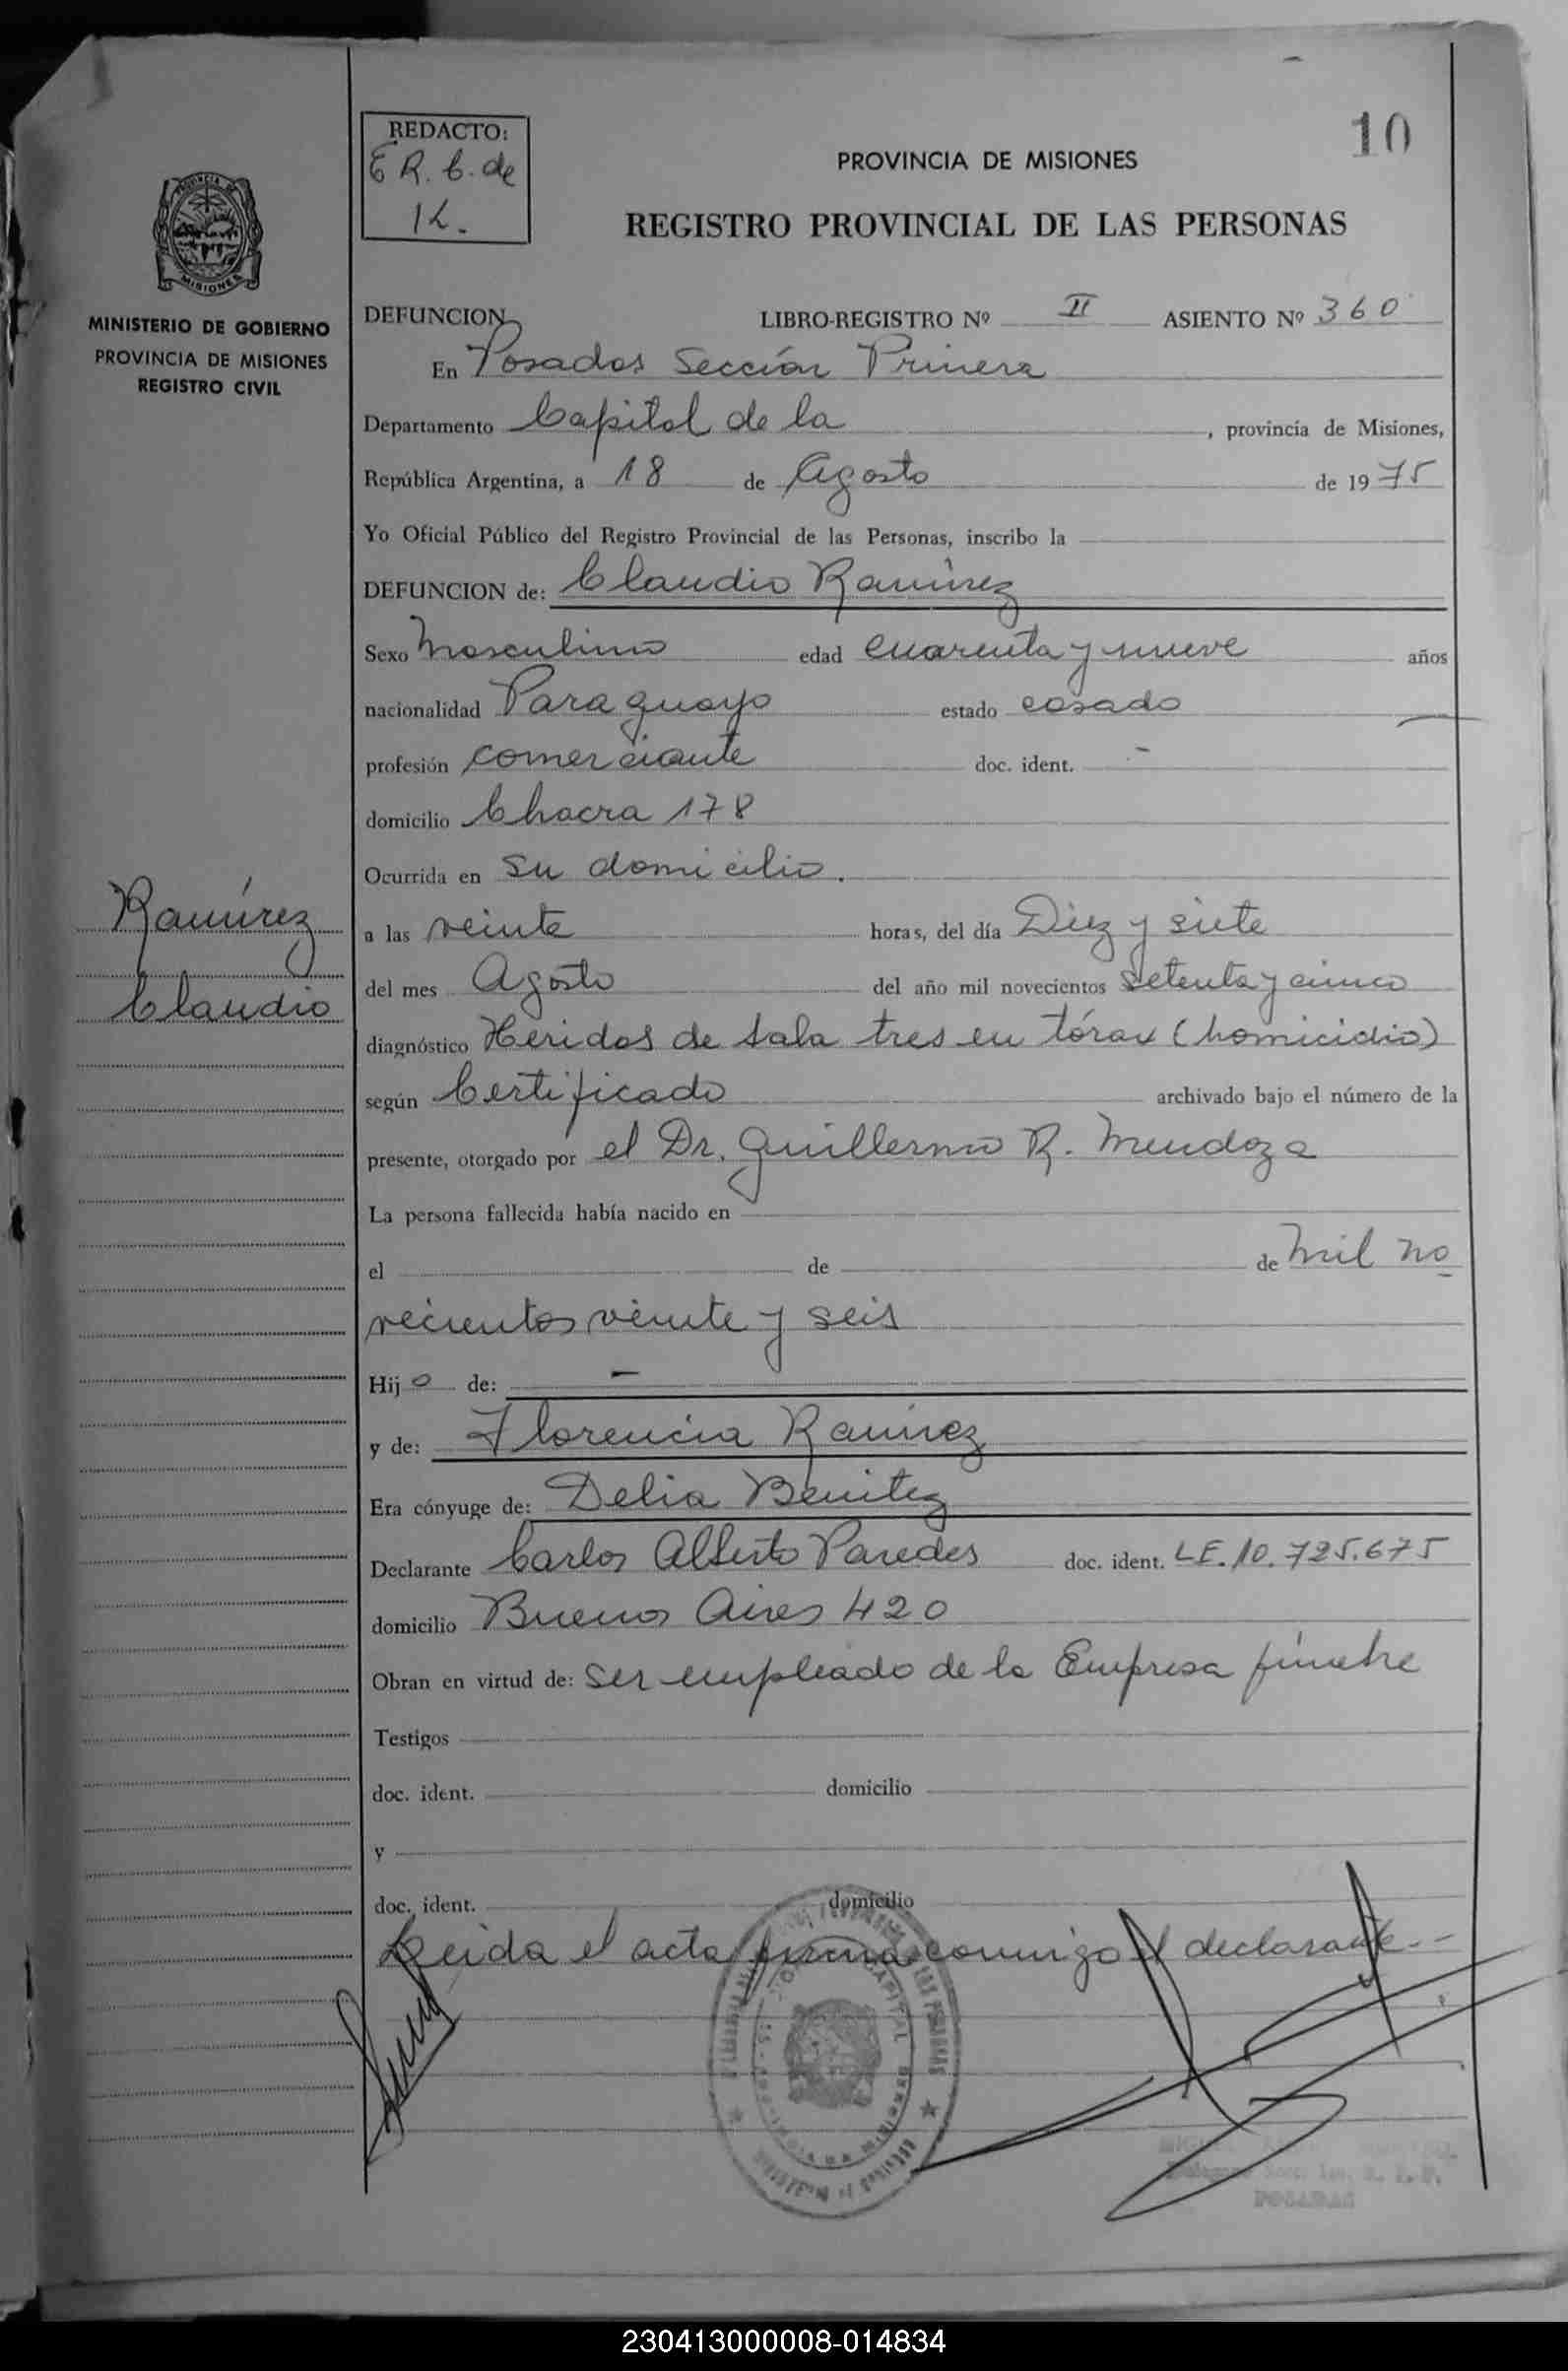 10
REDACTO:
E R. C. de
K.
PROVINCIA DE MISIONES
REGISTRO PROVINCIAL DE LAS PERSONAS
MISIONES
MINISTERIO DE GOBIERNO
PROVINCIA DE MISIONES
REGISTRO CIVIL
DEFUNCION LIBRO-REGISTRO Nº II ASIENTO Nº 360
En Posadas Sección Primera
Departamento Capital de la , provincia de Misiones,
República Argentina, a 18 de Agosto de 1975
Yo Oficial Público del Registro Provincial de las Personas, inscribo la
DEFUNCION de: Claudio Ramírez
Sexo Masculino edad cuarenta y nueve años
nacionalidad Paraguayo estado casado
profesión comerciante doc. ident. -
domicilio Chacra 178
Ocurrida en su domicilio.
Ramírez
Claudio
a las veinte horas, del día Diez y siete
del mes Agosto del año mil novecientos setenta y cinco
diagnóstico Heridas de bala tres en tórax (homicidio)
según Certificado archivado bajo el número de la
presente, otorgado por el Dr. Guillermo R. Mendoza
La persona fallecida había nacido en
el de de mil no
vecientos veinte y seis
Hijo de: -
y de: Florencia Ramírez
Era cónyuge de: Delia Benitez
Declarante Carlos Alberto Paredes doc. ident. LE. 10.725.675
domicilio Buenos Aires 420
Obran en virtud de: ser empleado de la Empresa fúnebre
Testigos
doc. ident. domicilio
y
doc. ident. domicilio
Leida el acta firma conmigo el declarante--
POSADAS
230413000008-014834